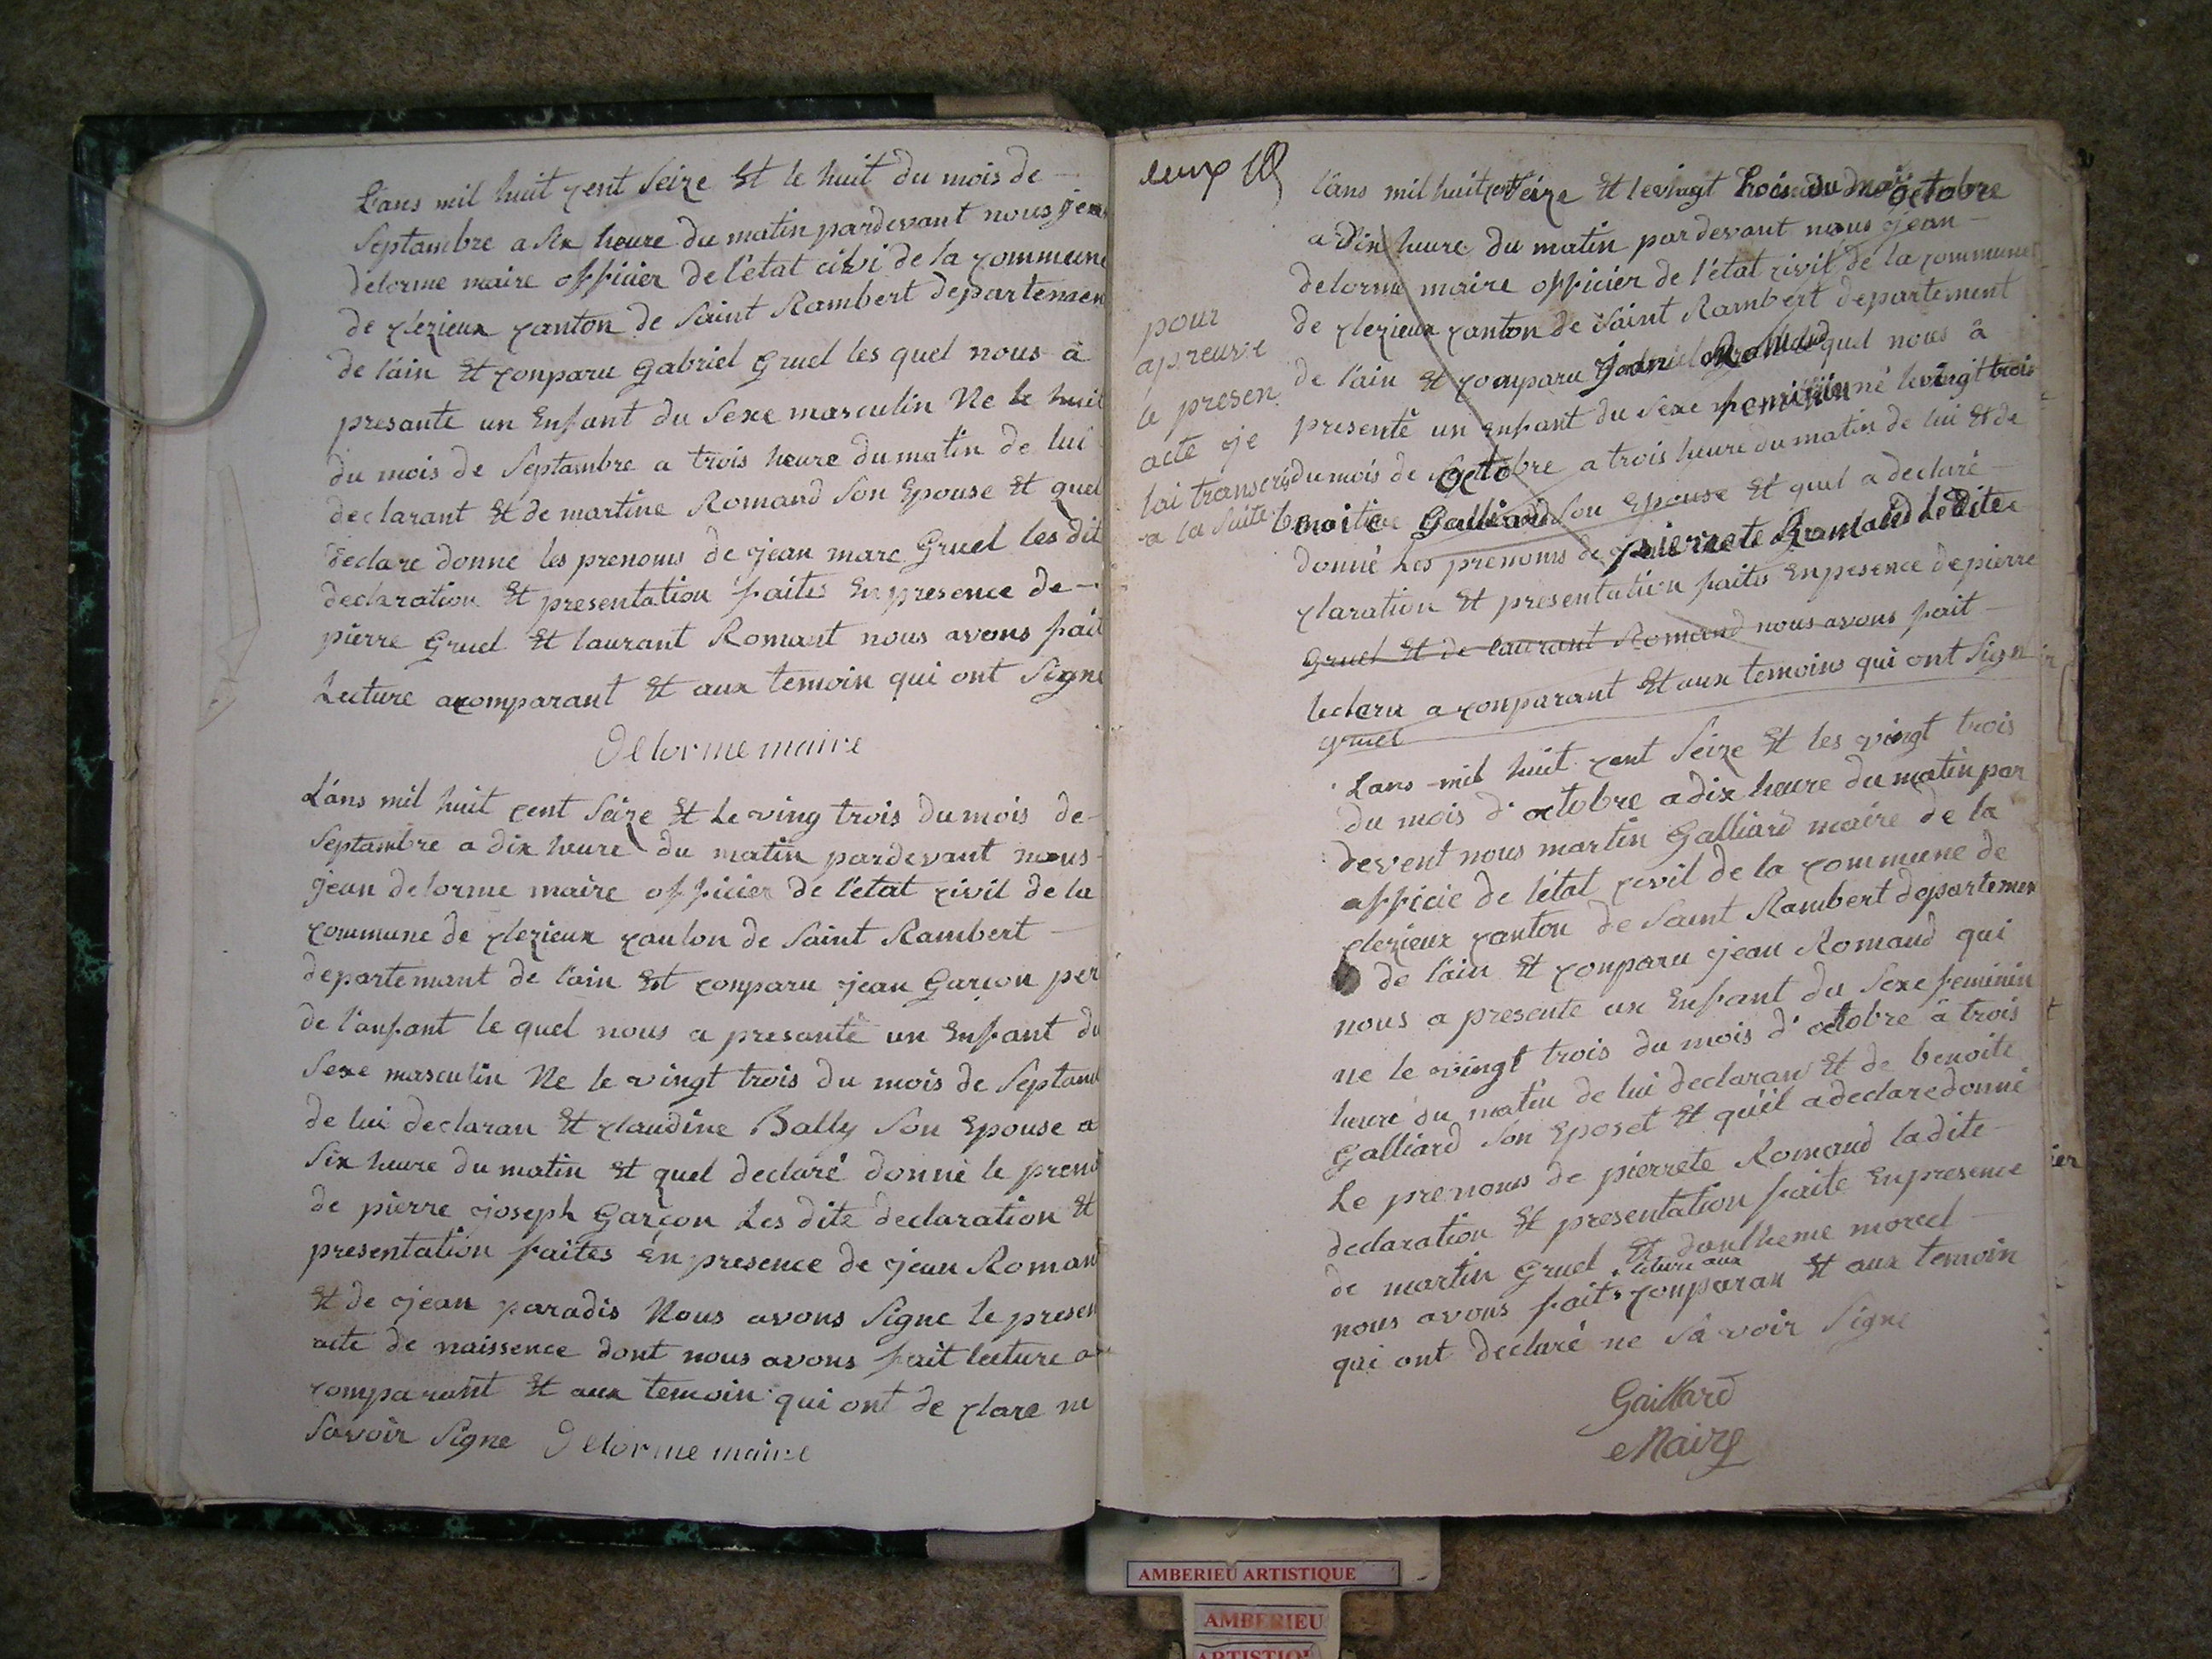 L'ans mil huit cent seize et le huit du mois de
Septambre a six heure du matin pardevant nous jean
delorme maire officier de l'état civi de la commune
de clezieux canton de Saint Rambert departemen
de l'ain et conparu Gabriel Gruel les quel nous à
presante un Enfant du Sexe masculin Ne le huit
du mois de Septambre a trois heure du matin de lui
declarant et de martine Romand Son Epouse et quel
declare donne les prenoms de jean marc Gruel les dit
declaration et presentation faites En presence de
pierre Gruel et laurant Romant nous avons fait
Lecture acomparant et aux temoin qui ont Signe
Delorme maire
L'ans mil huit cent Seize et Le ving trois du mois de
Septambre a dix heure du matin pardevant nous
jean delorme maire officier de l'état civil de la
commune de clezieux canton de Saint Rambert
departemant de l'ain Est conparu jean Garçon per
de l'anfant le quel nous a presanté un Enfant du
Sexe masculin Ne le vingt trois du mois de Septamb
de lui declaran et claudine Bally Son Epouse a
Six heure du matin et quel declaré donné le preno
de pierre joseph Garçon Les dite declaration et
presentation faites En presence de jean Romand
et de jean paradis Nous avons Signe le presen
acte de naissence dont nous avons fait lecture au
comparant et aux temoin qui ont de clare ne
Savoir Signe Delorme maire
l'ans mil huit cent Seize et le vingt trois du mois octobre
a Dix heure du matin pardevant nous jean
delorme maire officier de l'état civil de la commune
de clezieux canton de Saint Rambert departement
de l'ain et comparu Romand quel nous à
presenté un enfant du Sexe feminin né le vingt trois
du mois de octobre a trois heure du matin de lui et de
benoite Galliard Son Epouse et quel a declaré
donné Les prenoms de pierrete Romand lédite
claration et presentation faites En presence de pierre
Gruel et de laurant Romand nous avons fait
lecteru a conparant et aux temoins qui ont Sign
gruel
pour
apreuve
le presen
acte je
lai transcris
a la Suite
Lans mil huit cent Seize et les vingt trois
du mois d'octobre a dix heure du matin par
devent nous martin Galliard maire de la
officie de l'état civil de la commune de
clezieux canton de Saint Rambert departemen
de l'ain et conparu jean Romand qui
nous a presente un Enfant du Sexe feminin
ne le vingt trois du mois d'octobre à trois
heure du matin de lui declaran et de benoite
Galliard Son Eposet et qu'il a declare donné
Le prenoms de pierrete Romand la dite
declaration et presentation faite En presence
de martin Gruel et morel
nous avons fait lecture aux conparan et aux temoin
qui ont declaré ne Savoir Signe
Gaillard
Maire
AMBERIEU ARTISTIQUE
AMBERIEU
ARTISTIQU